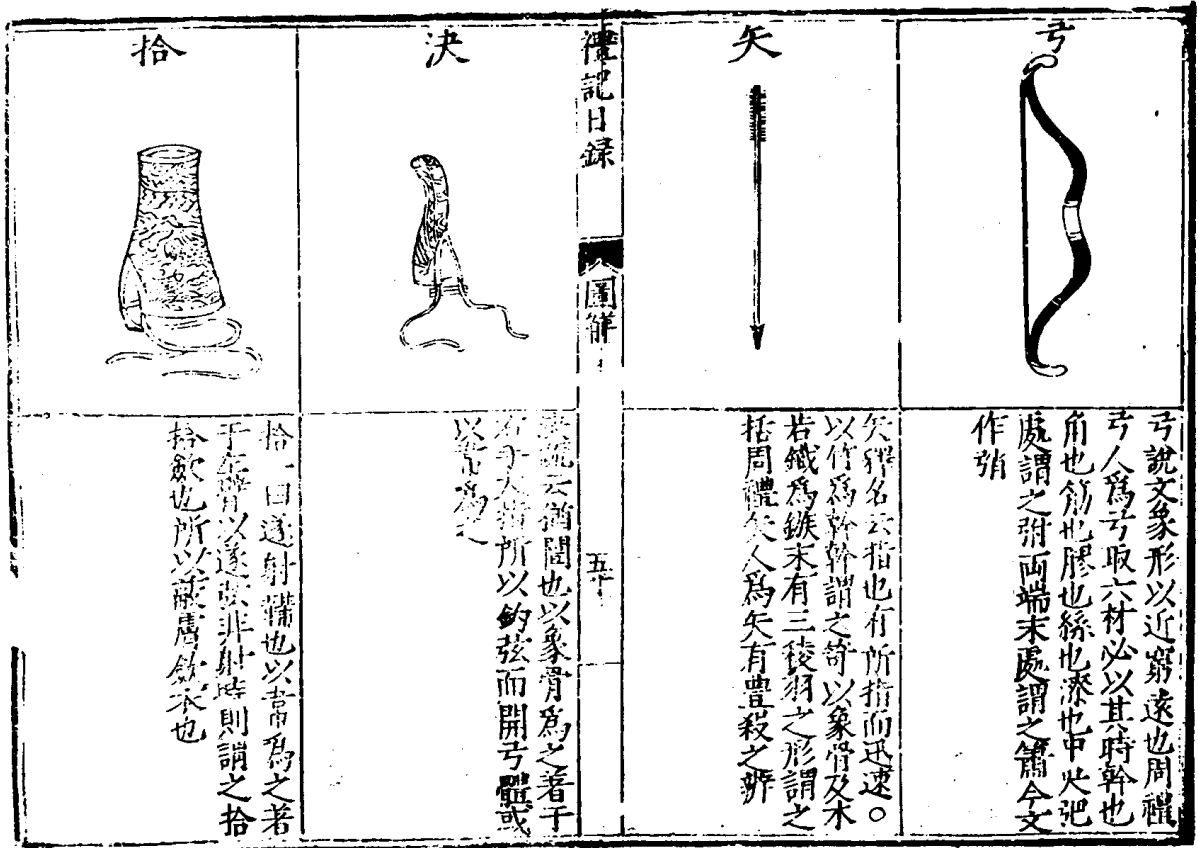 弓
弓說文象形以近窮遠也周禮
弓人爲弓取六材必以其時幹也
角也筋也膠也絲也漆也中央弛
處謂之弣兩端末處謂之簫今文
作弰
矢
矢釋名云指也有所指而迅速○
以竹爲幹幹謂之笴以象骨及木
若鐵爲鏃末有三稜羽之形謂之
括周禮矢人爲矢有豊殺之辨
禮記目錄
圖解
五十
決
云猶闓也以象骨爲之著于
右手大指所以鉤弦而開弓體或
以韋爲之
拾
拾一曰遂射韝也以韋爲之著
于左臂以遂弦非射時則謂之拾
拾斂也所以蔽膚斂衣也